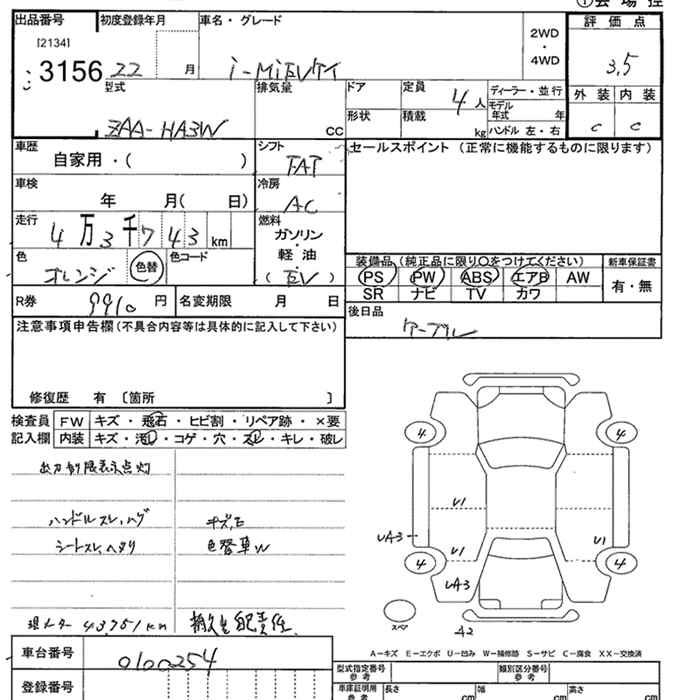 ①会場控
出品番号 初度登録年月 車名・グレード 2WD・4WD 評価点
[2134]
3156 22 月 i-MiEVケイ 3,5
型式 排気量 ドア 定員 4人 ディーラー・並行 外装 内装
形状 積載 kg モデル年式 年 C C
ZAA-HA3W CC ハンドル 左・右
車歴 シフト セールスポイント(正常に機能するものに限ります)
自家用・( ) FAT
車検 冷房
年 月( 日) AC
走行 燃料
4万3千743km ガソリン・軽油
色 色コード
オレンジ 色替 (EV) 装備品(純正品に限り○をつけてください) 新車保証書
PS PW ABS エアB AW 有・無
R券 9910円 名変期限 月 日 SR ナビ TV カワ
注意事項申告欄(不具合内容等は具体的に記入して下さい) 後日品
ケーブル
修復歴 有 [箇所 ]
検査員 FW キズ・飛石・ヒビ割・リペア跡・×要
記入欄 内装 キズ・汚レ・コゲ・穴・スレ・キレ・破レ
出力制限表示点灯
ハンドルスレ、ハゲ キズ、E
シートスレ、ヘタリ 色替車W
現メーター 43,751km 搬入生配責任
4 4
U1
UA3 U1 U1
4 4
UA3
スペア A2
車台番号 0100254
A-キズ E-エクボ U-凹み W-補修跡 S-サビ C-腐食 XX-交換済
登録番号
型式指定番号 参考 類別区分番号 参考
車庫証明用 参考 長さ cm 幅 cm 高さ cm